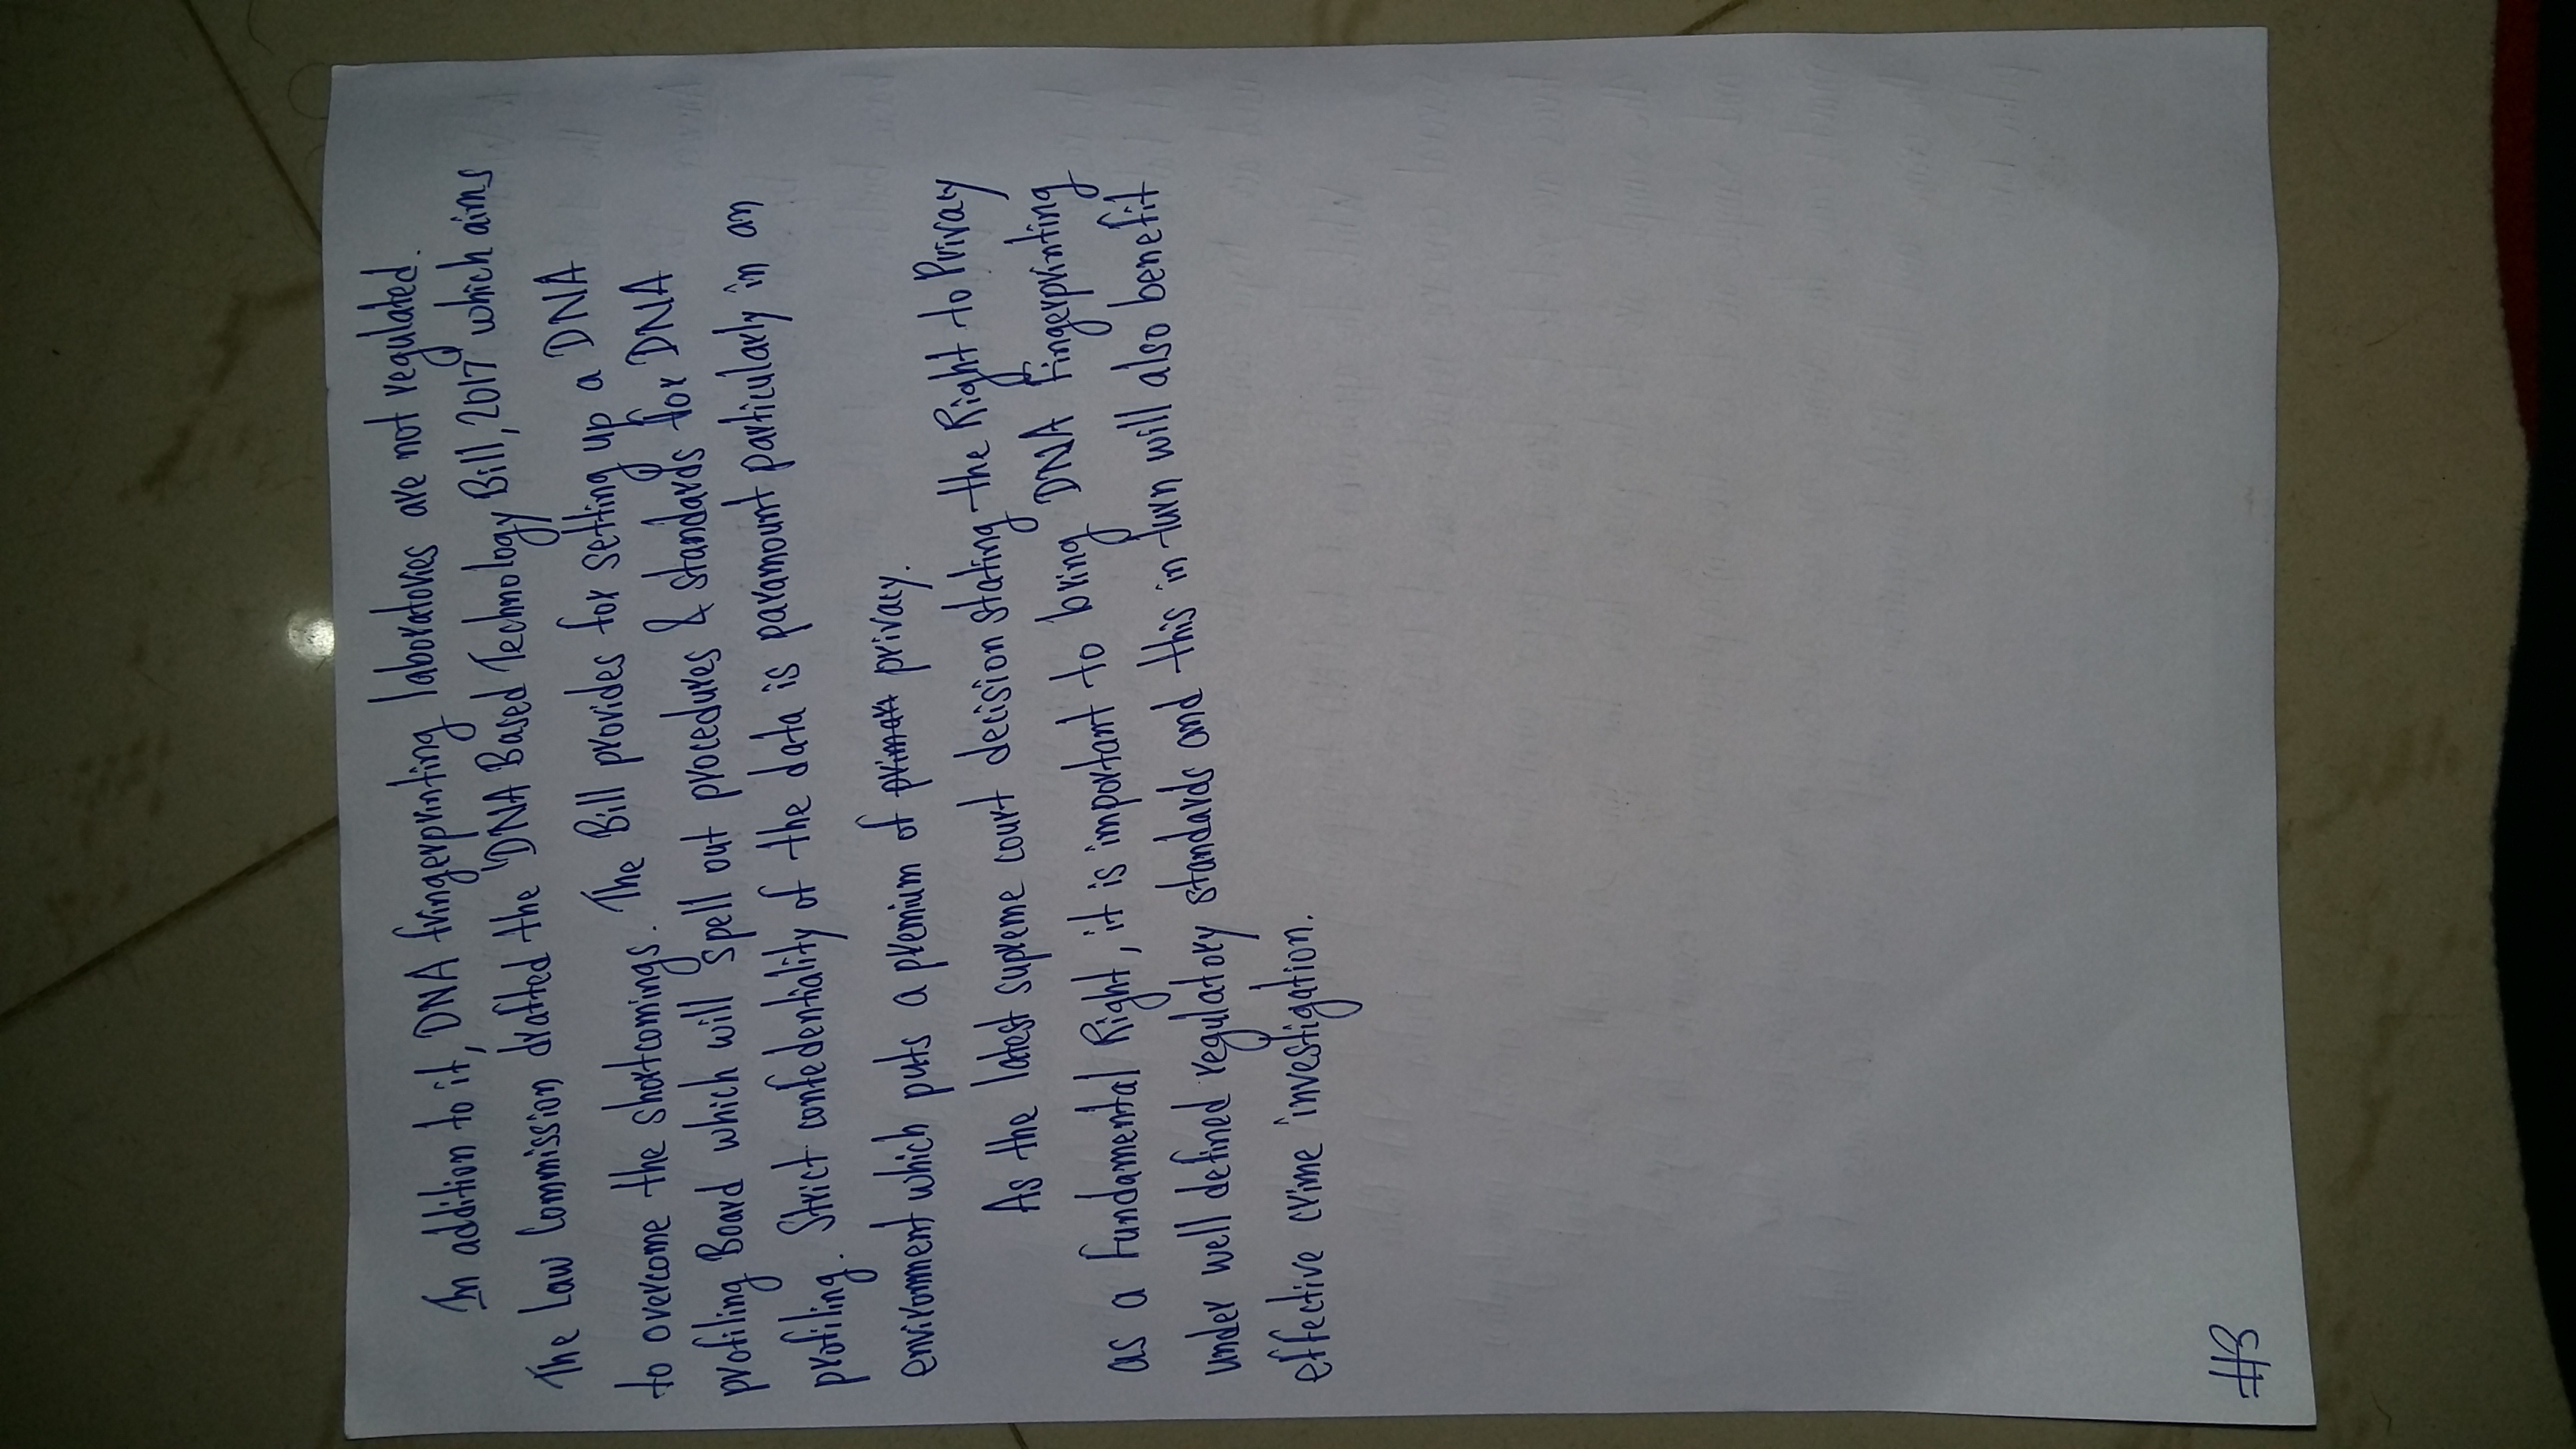 In addition to it, DNA fringerprinting laboratories are not regulated.
The Law Commission drafted the 'DNA Based Technology Bill, 2017' which aims
to overcome the shortcomings. The Bill provides for setting up a DNA
profiling Board which will spell out procedures & standards for DNA
profiling. Strict confedentiality of the data is paramount particularly in an
environment which puts a premium of privacy.
As the latest supreme court decision stating the Right to Privay
as a Fundamental Right, it is important to bring DNA Fingerprinting
under well defined regulatory standards and this in turn will also benefit
effective crime investigation.
#3